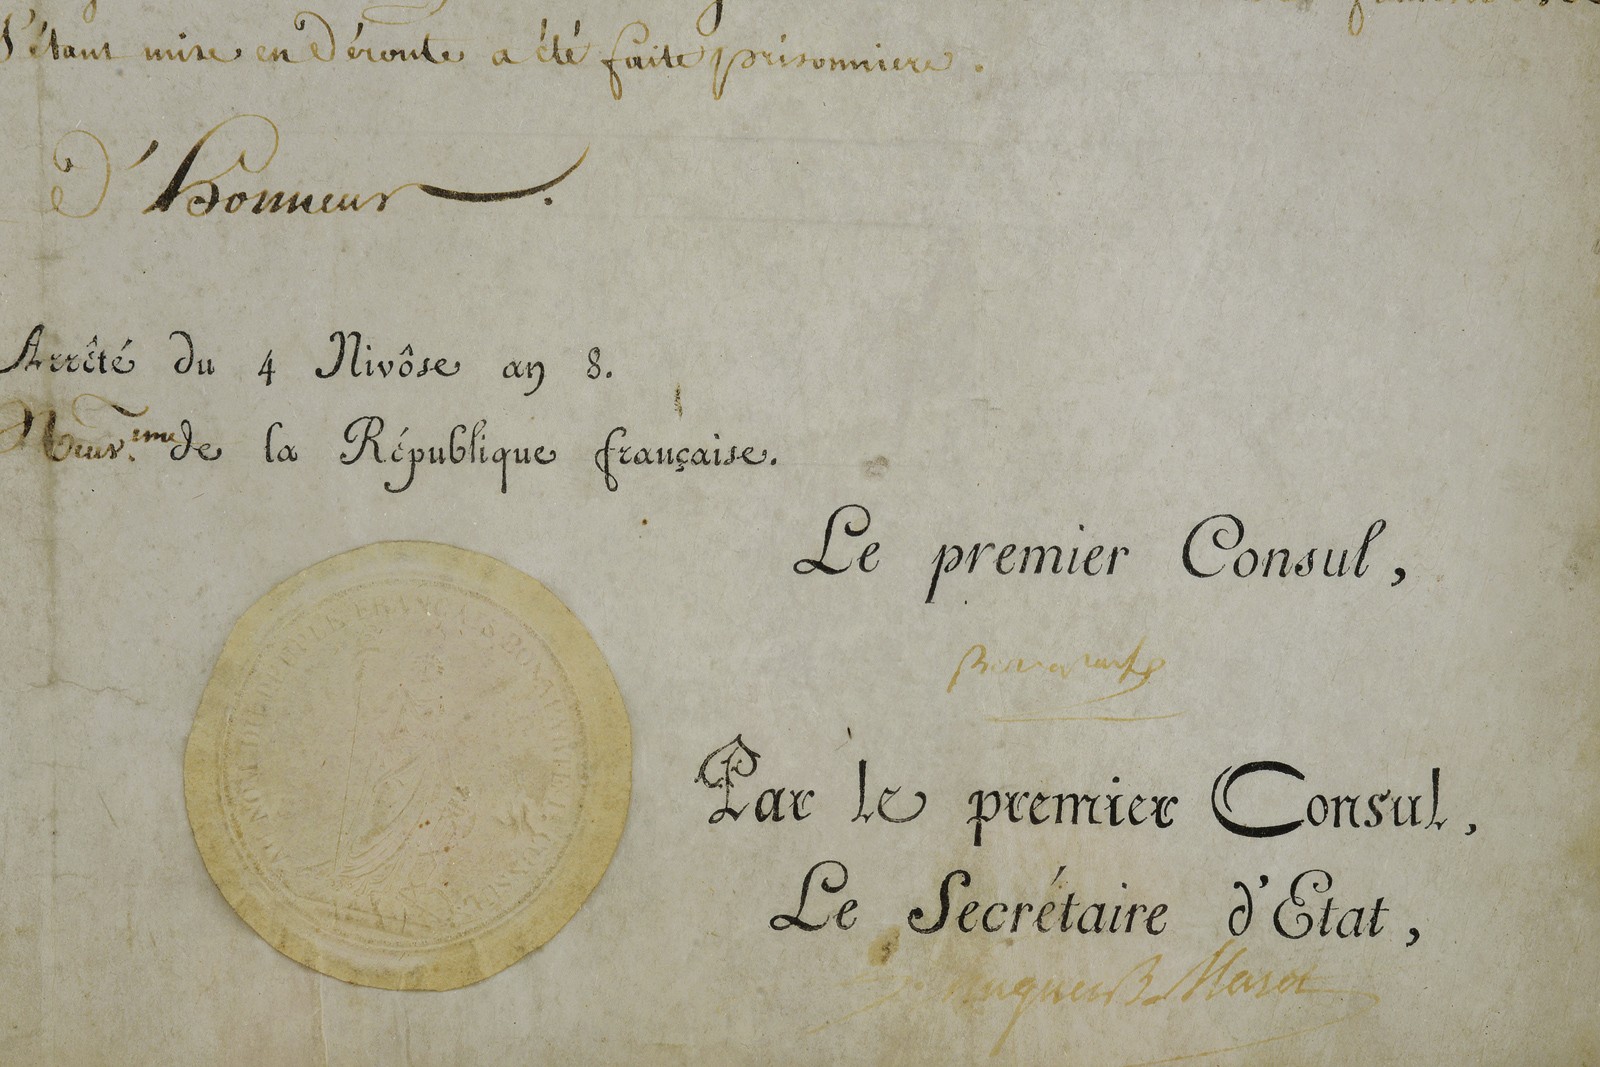 S'étant mise en Déroute a été faite prisonniere.
d'Honneur.
Arrêté du 4 Nivôse an 8.
Neuv.eme de la République française.
Le premier Consul,
Bonaparte
Par le premier Consul,
Le Secrétaire d'Etat,
Hugues B. Maret
AU NOM DU PEUPLE FRANÇAIS BONAPARTE 1.er CONSUL